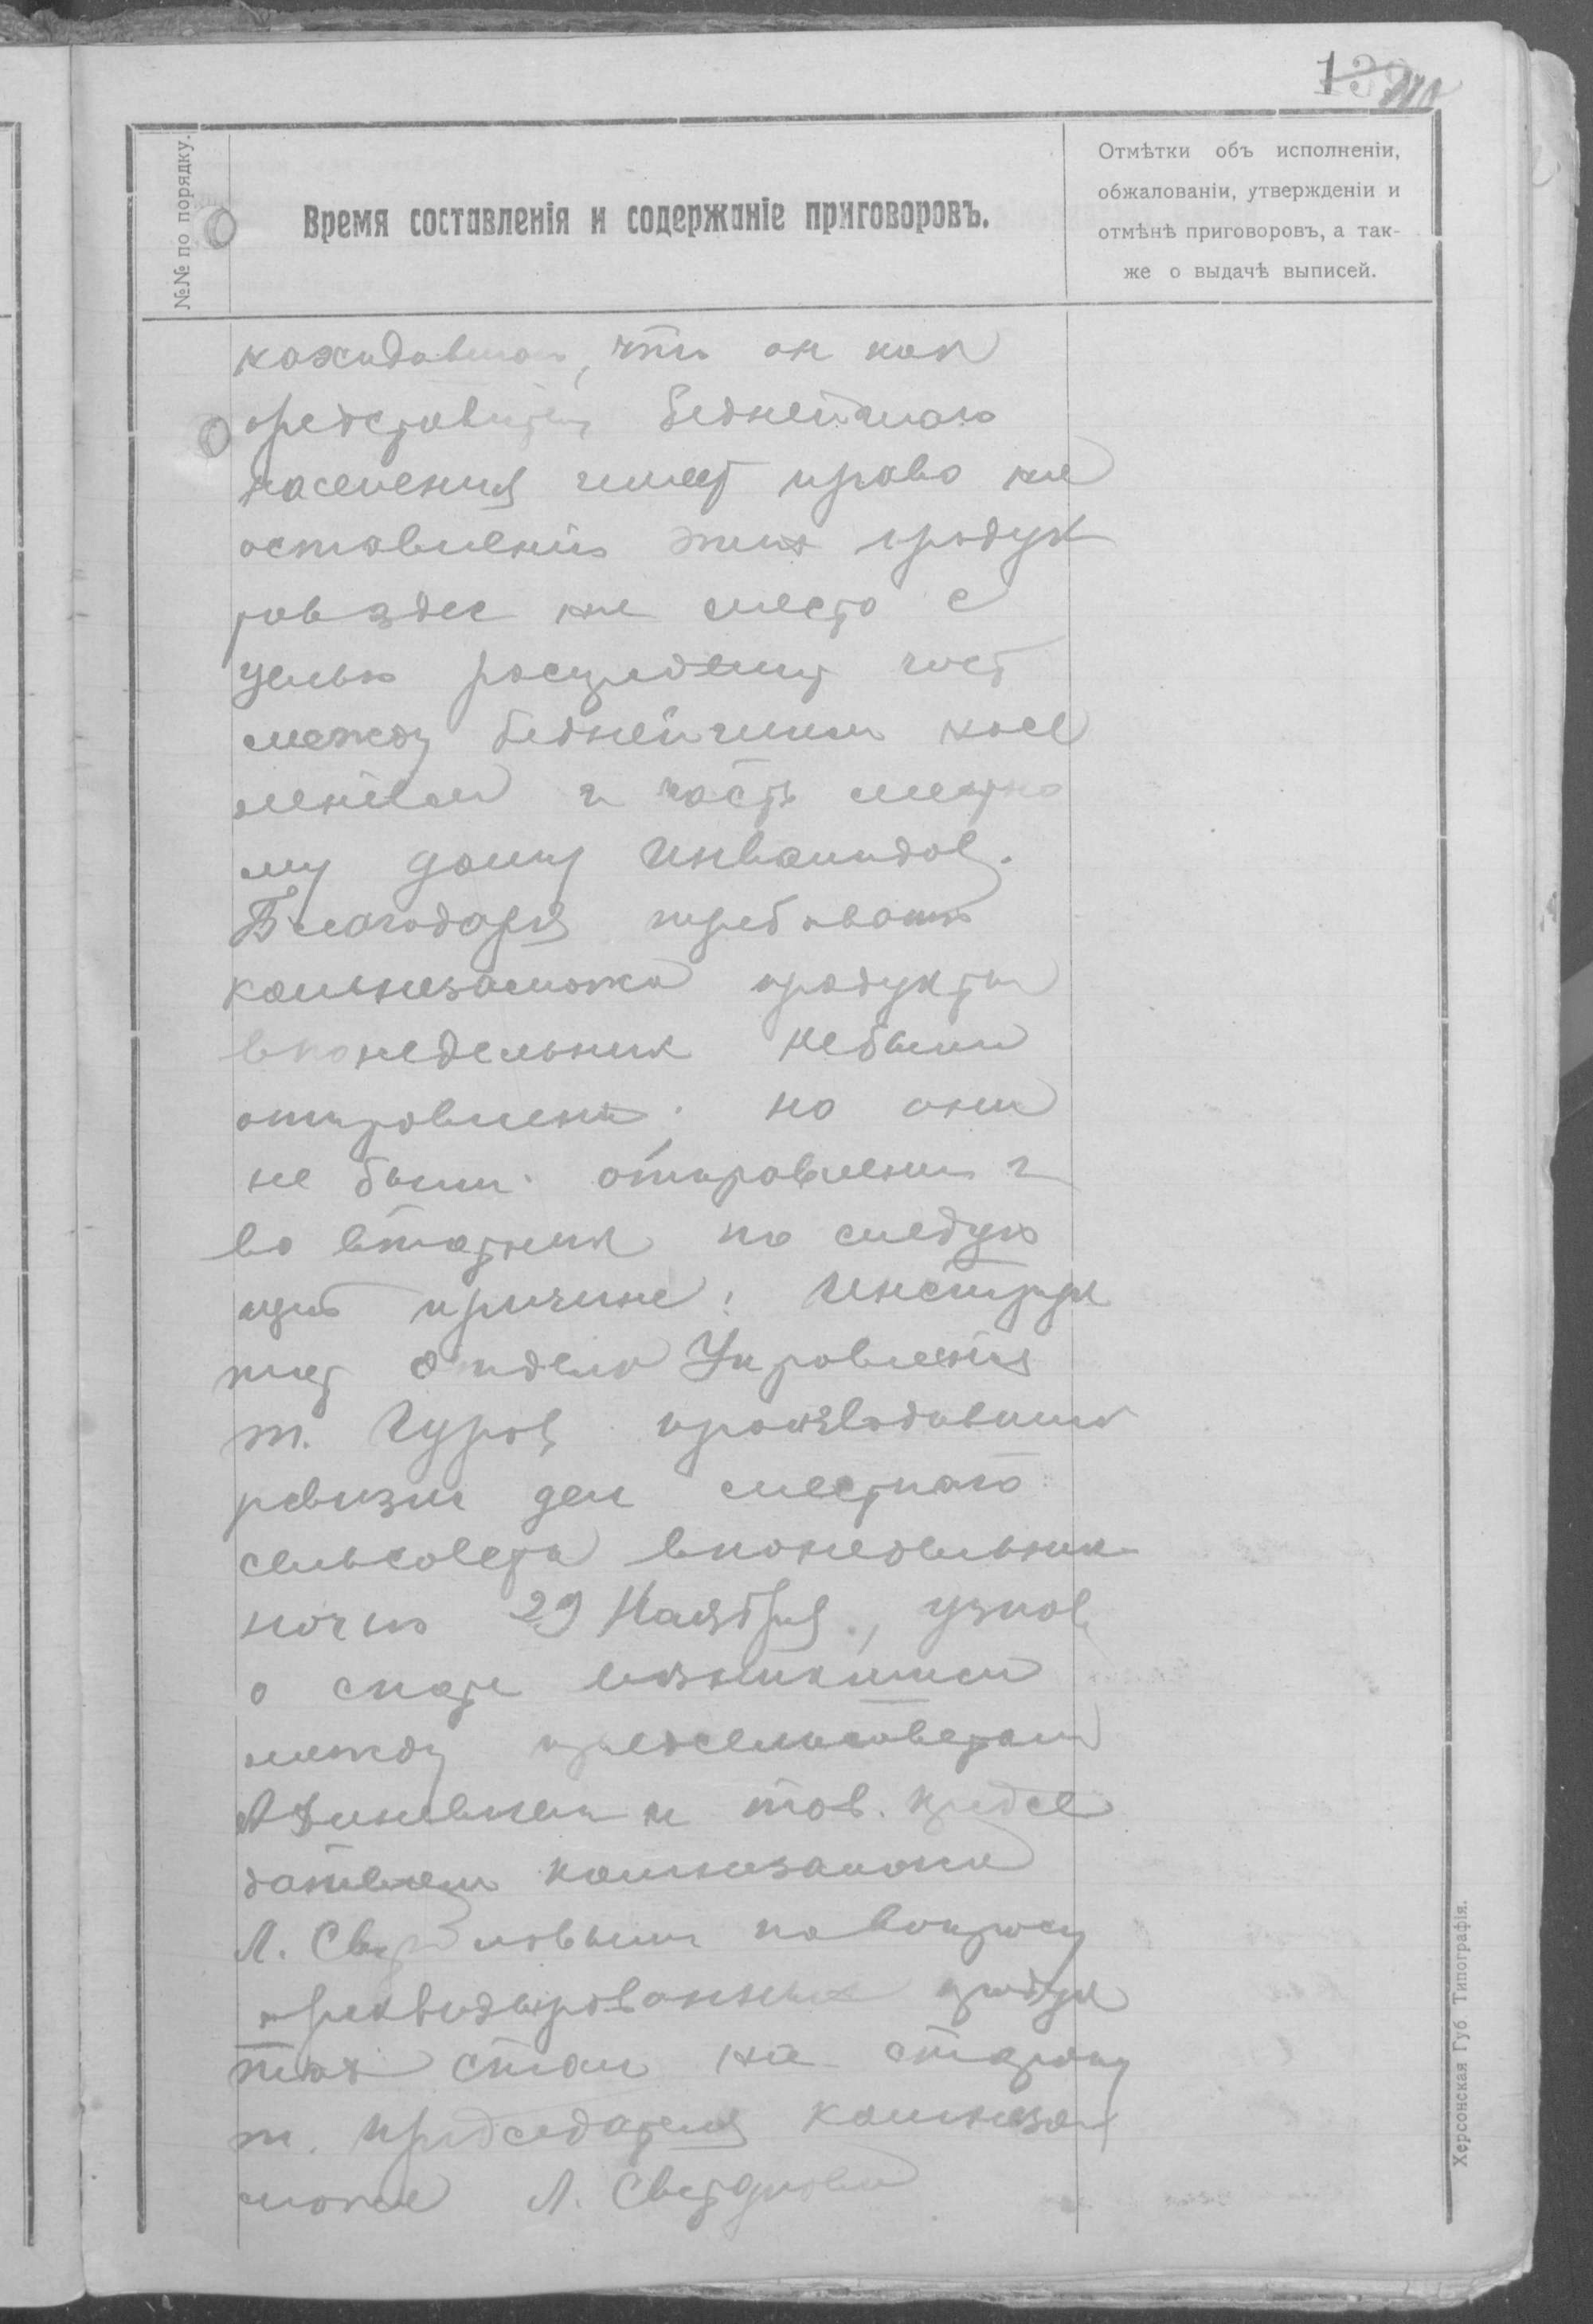 №№ по порядку.
Время составленія и содержаніе приговоровъ.
Отмѣтки объ исполненіи,
обжалованіи, утвержденіи и
отмѣнѣ приговоровъ, а так-
же о выдачѣ выписей.
что он как
беднейшаго
населения имеет право на
оставлении этих продук
тов здес на место с
целью част
между беднейшим насе
лением и часть местно
му дому Инвалидов.
Благодаря требованию
комнезаможа продукты
впонедельник небыли
отправлены; но они
не были отправлены и
во вторник по следую
щей причине: Инструк
тор Отдела Управления
т. Гуров производивший
ревизии дел местного
сельсовета впонедельник
ночью 29 Ноября, узнав
о споре возникшем
между предсельсоветом
и тов. предсе
дателем комнезаможа
Л. Свердловым по вопросу
о реквизированных продук
тах стал на сторону
т. председателя комнеза
можа Л. Свердлова
Херсонская Губ. Типографія.